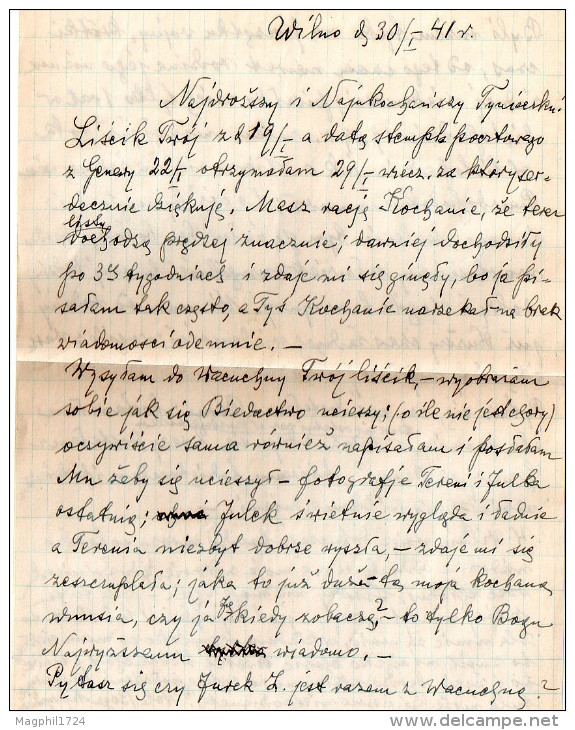 Wilno d 30/I 41 r.
Najdroższy i Najukochańszy
Liścik Twój z d 19/I a datą stempla pocztowego
z Genewy 22/I otrzymałam 29/I wiecz. za który ser-
decznie dziękuję. Masz rację Kochanie, że teraz
listy
dochodzą prędzej znacznie; dawniej dochodziły
po 3ch tygodniach i zdaje mi się ginęły, bo ja pi-
sałam tak często, a Tyś Kochanie narzekał na brak
wiadomości odemnie. —
Wysyłam do Wacuchny Twój liścik, — wyobrażam
sobie jak się Biedactwo ucieszy! (o ile nie jest chory)
oczywiście sama również napisałam i posłałam
Mu żeby się ucieszył — fotografje Tereni i Julka
ostatnią; Julek świetnie wygląda i ładnie
a Terenia niezbyt dobrze wyszła, — zdaje mi się
zeszczuplała; jaka to już duża ta moja kochana
wnusia, czy ja Ją kiedy zobaczę? — to tylko Bogu
Najwyższemu wiadomo. —
Pytasz się czy Jurek Z. jest razem z Wacuchną?
Magphil1724
delcampe.net